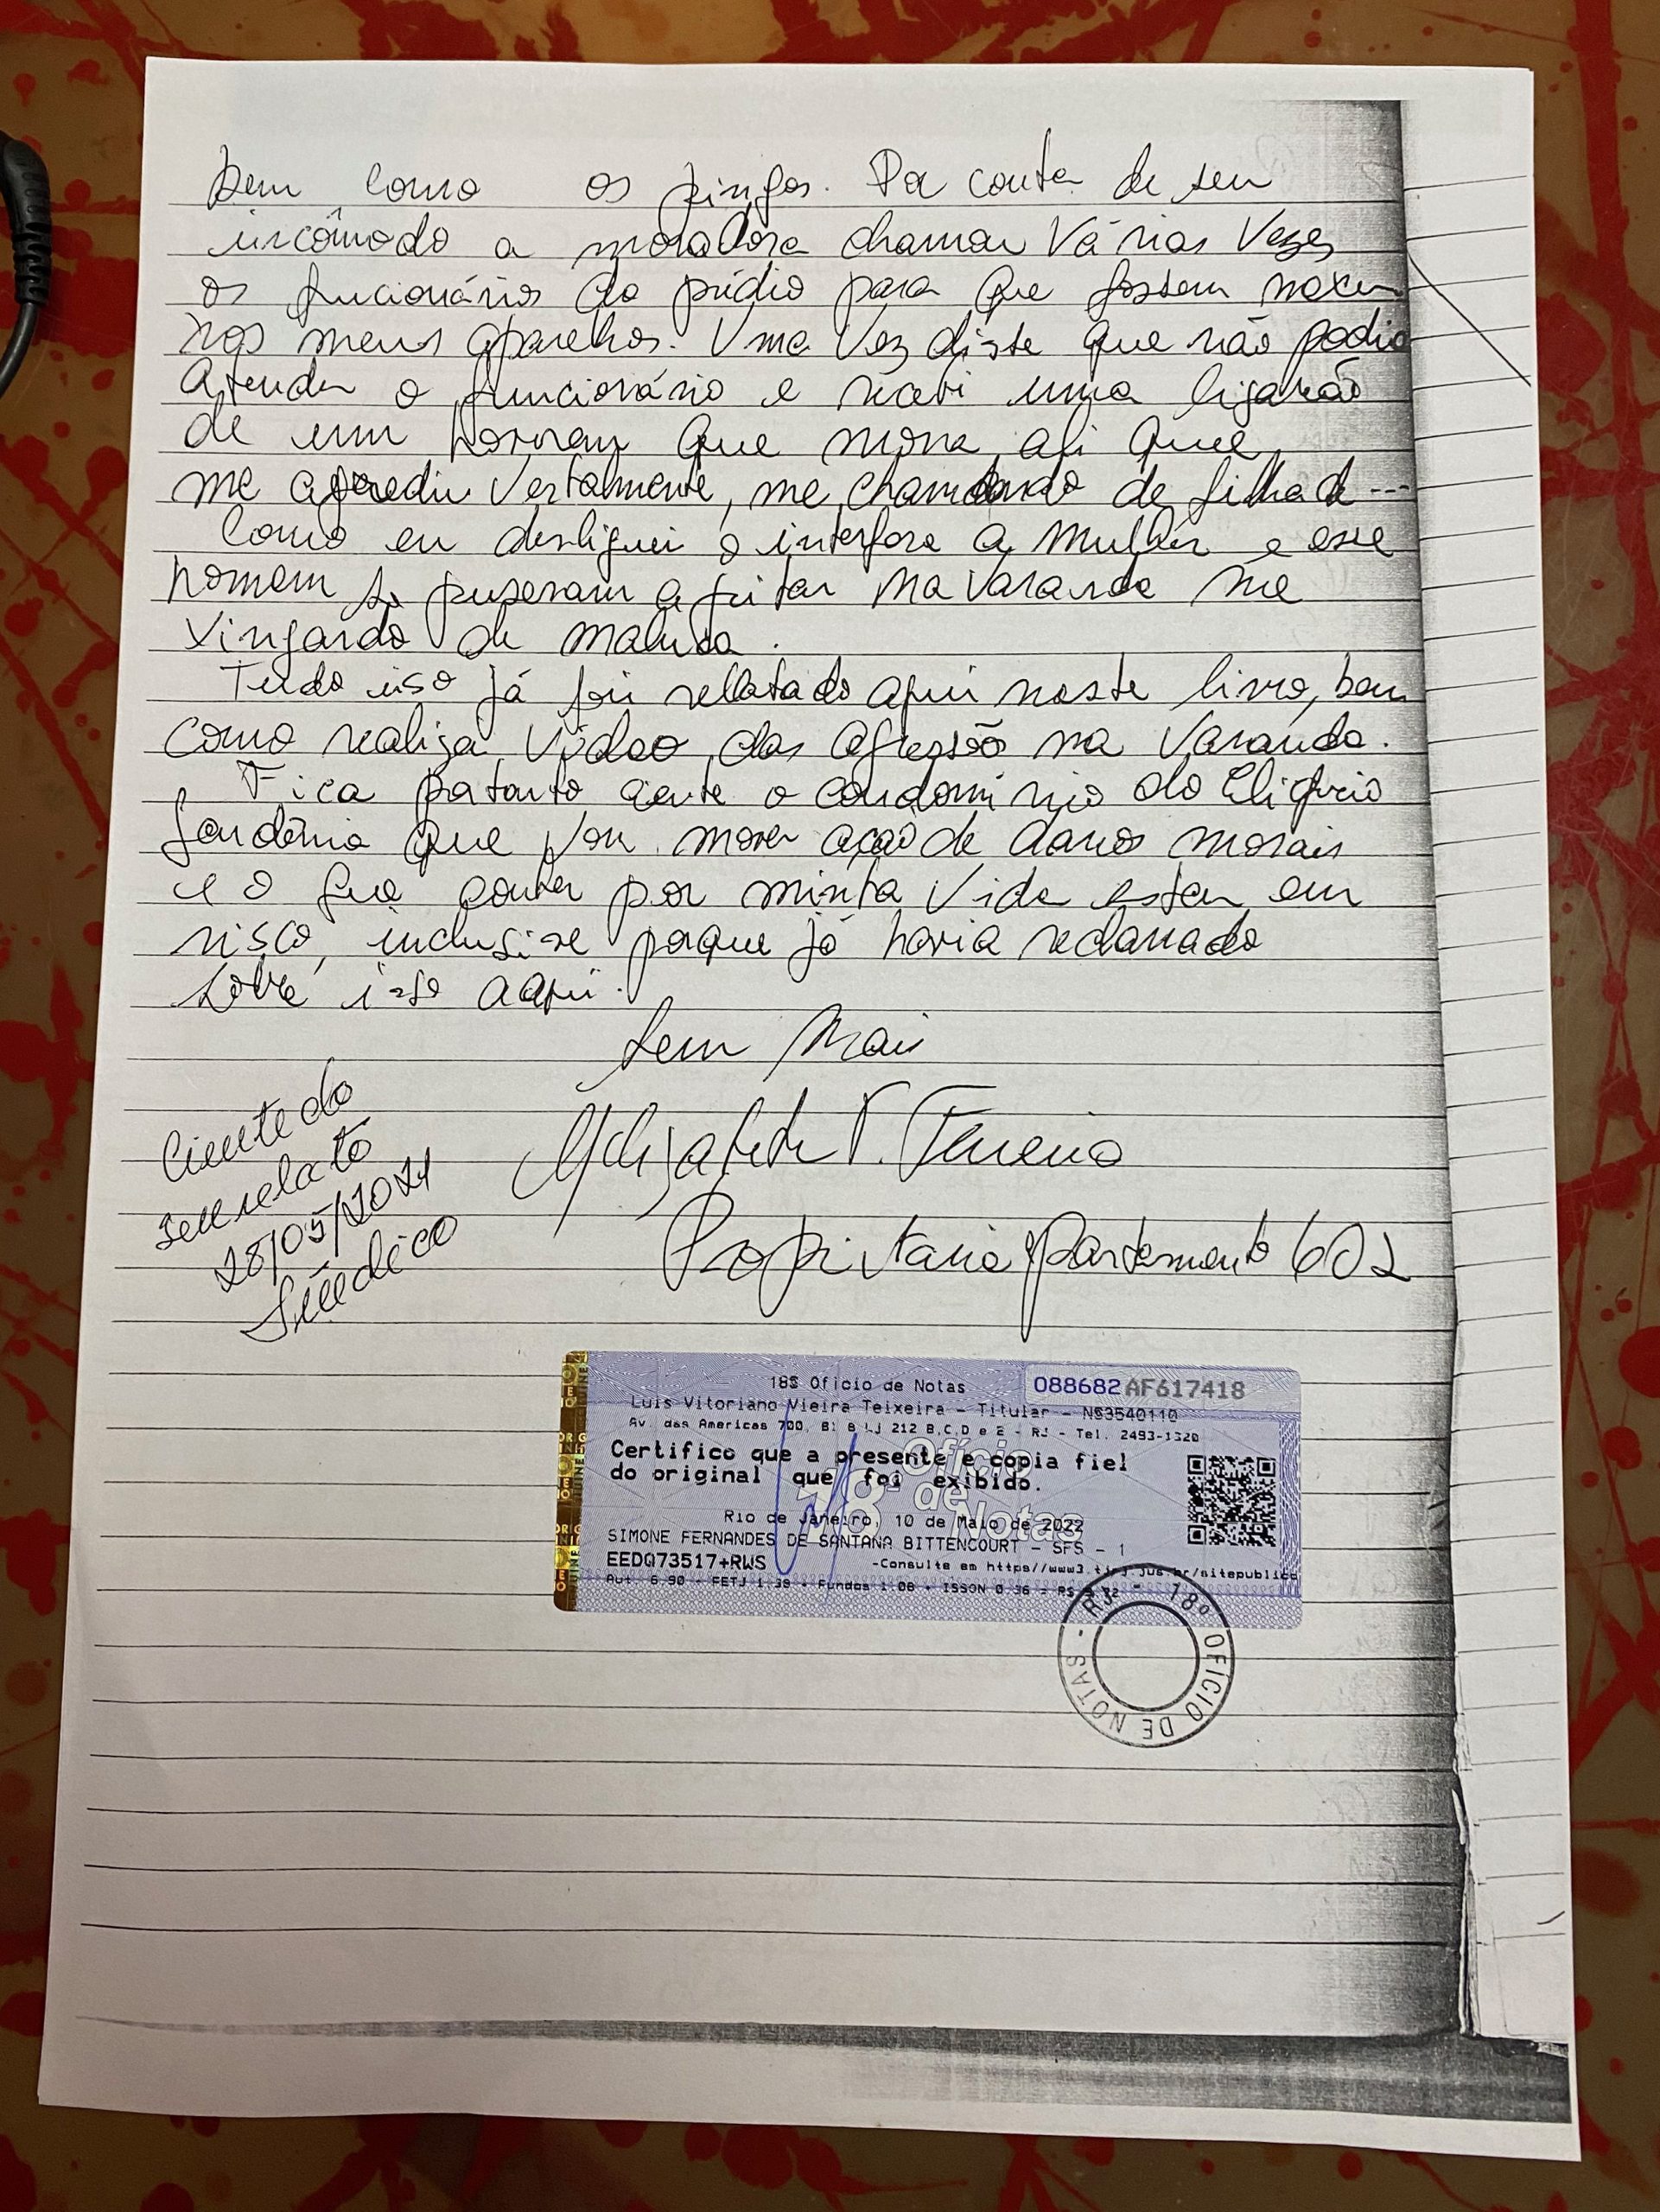 bem como os pingos. Por conta de seu
incômodo a moradora chamou Várias Vezes
os funcionários do prédio para que fossem mexer
nos meus aparelhos. Uma Vez disse que não podia
atender o funcionário e recebi uma ligação
de um homem que mora ali que
me agrediu Verbalmente, me chamando de filha d ---
Como eu desliguei o interfone a mulher e esse
homem se puseram a gritar na varanda me
xingando de maluca.
Tudo isso já foi relatado aqui neste livro, bem
como realizei Vídeo das agressão na Varanda.
Fica portanto ciente o condomínio do
que vou mover ação de danos morais
e o que couber por minha Vida estar em
risco, inclusive porque já havia reclamado
sobre isso aqui.
Sem Mais
Elizabeth Ferreira
Propritaria Apartamento 602
Ciente do
seu relato
28/05/2021
Síndico
18º Oficio de Notas
088682AF617418
Luis Vitoriano Vieira Teixeira - Titular - N$3540110
Av. das Americas 700, Bl 8 Lj 212 B,C,D e E - RJ - Tel. 2493-1320
Certifico que a presente e copia fiel
do original que foi exibido.
18º Ofício de Notas
Rio de Janeiro, 10 de Maio de 2022
SIMONE FERNANDES DE SANTANA BITTENCOURT - SFS - 1
EEDQ73517+RWS -Consulte em https//www3.tjrj.jus.br/sitepublico
Aut 6.90 + FETJ 1.39 + Fundos 1.08 + ISSQN 0.36 = R$
18º OFÍCIO DE NOTAS - RJ -